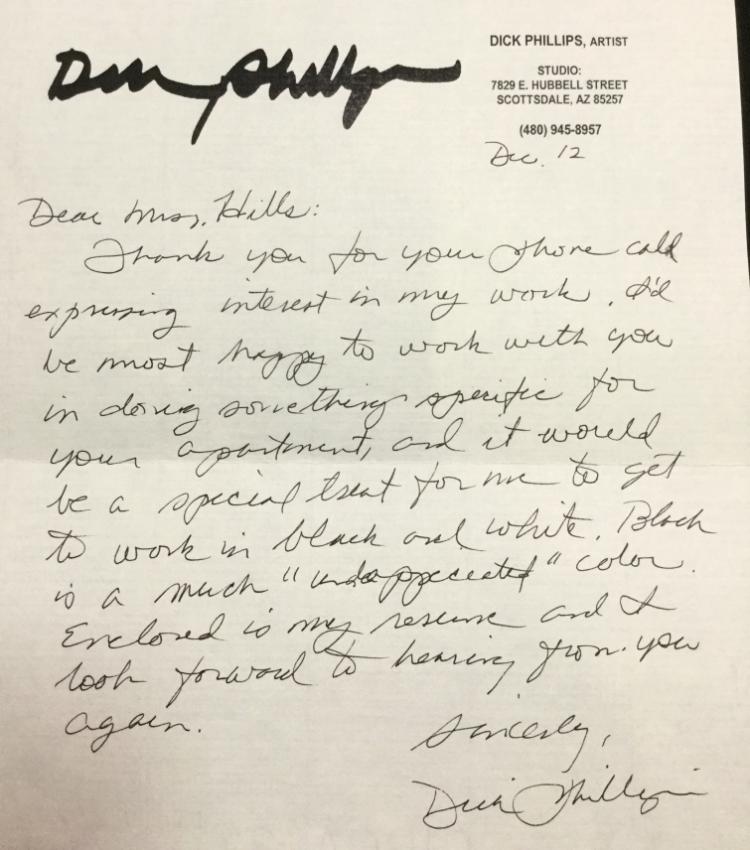 Dick Phillips
DICK PHILLIPS, ARTIST
STUDIO:
7829 E. HUBBELL STREET
SCOTTSDALE, AZ 85257
(480) 945-8957
Dec. 12
Dear Mrs. Hills:
Thank you for your phone call
expressing interest in my work. I'd
be most happy to work with you
in doing something specific for
your apartment, and it would
be a special treat for me to get
to work in black and white. Black
is a much "underappreciated" color.
Enclosed is my resume and I
look forward to hearing from you
again.
Sincerely,
Dick Phillips